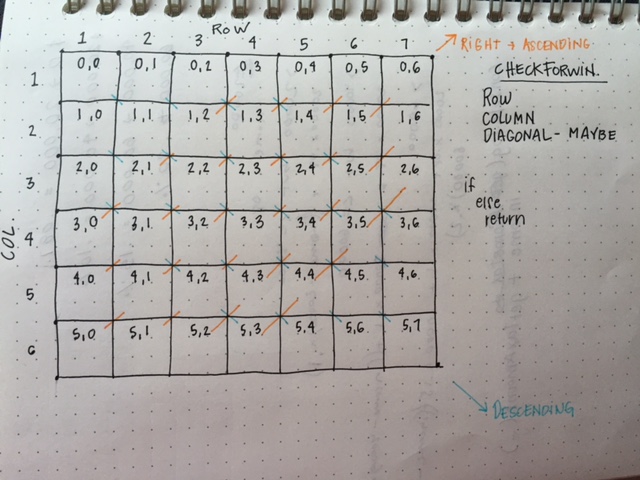 Row
1 2 3 4 5 6 7
RIGHT + ASCENDING
CHECKFORWIN.
COL.
1 0,0 0,1 0,2 0,3 0,4 0,5 0,6
2 1,0 1,1 1,2 1,3 1,4 1,5 1,6
3 2,0 2,1 2,2 2,3 2,4 2,5 2,6
4 3,0 3,1 3,2 3,3 3,4 3,5 3,6
5 4,0 4,1 4,2 4,3 4,4 4,5 4,6
6 5,0 5,1 5,2 5,3 5,4 5,6 5,7
Row
COLUMN
DIAGONAL - MAYBE
if
else
return
DESCENDING